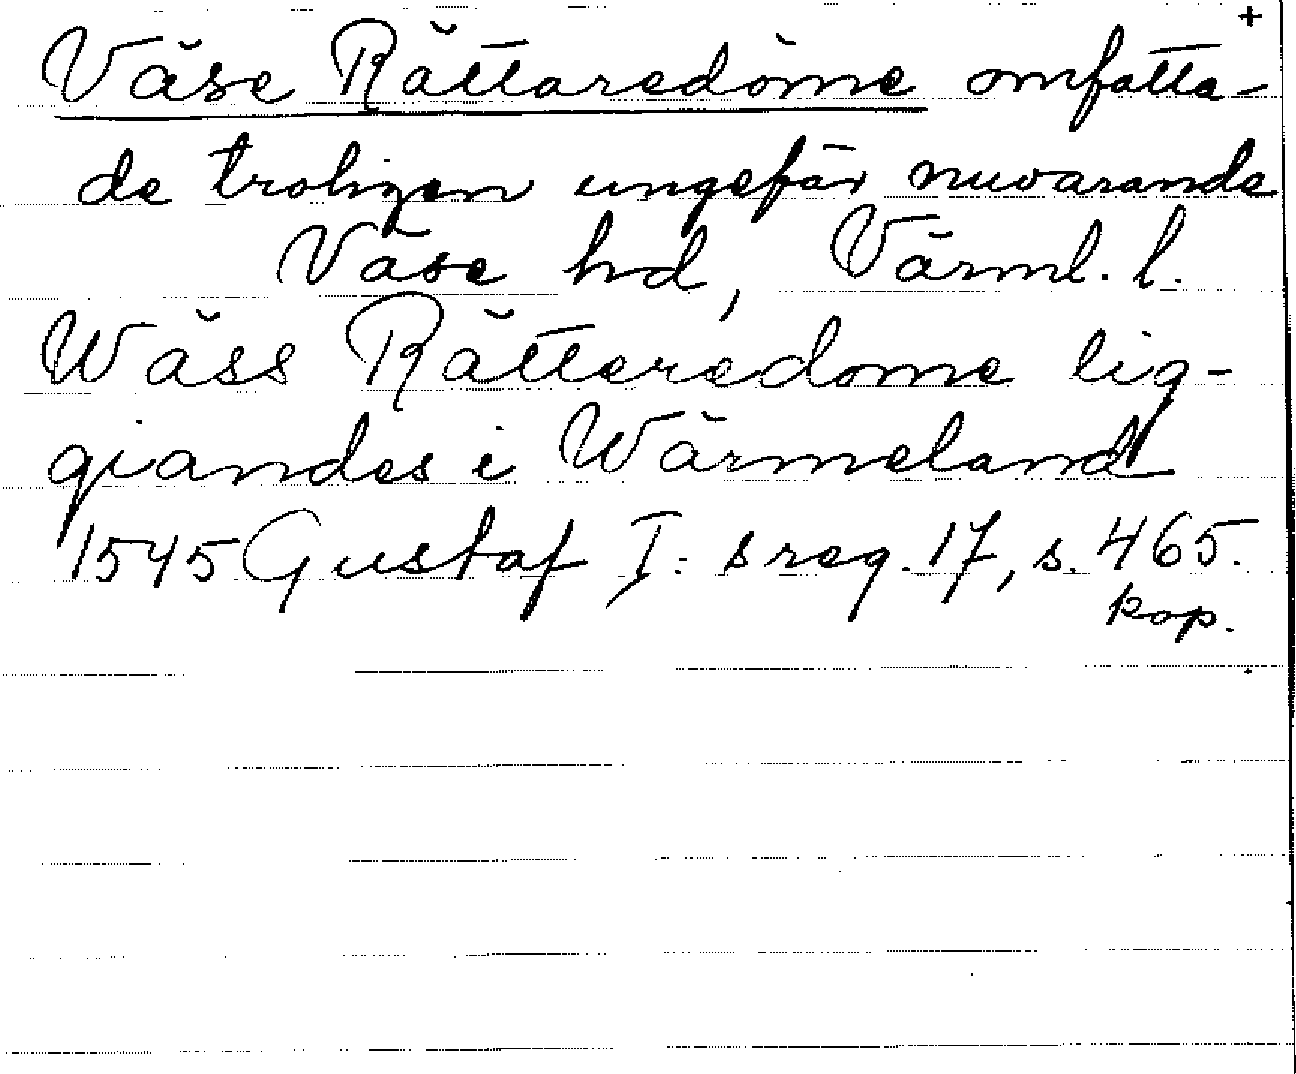 +
Väse Rättaredöme omfatta-
de troligen ungefär nuvarande
Väse hd, Värml. l.
Wäss Rätteredome lig-
giandes i Wärmeland
1545 Gustaf I:s reg. 17, s. 465.
kop.